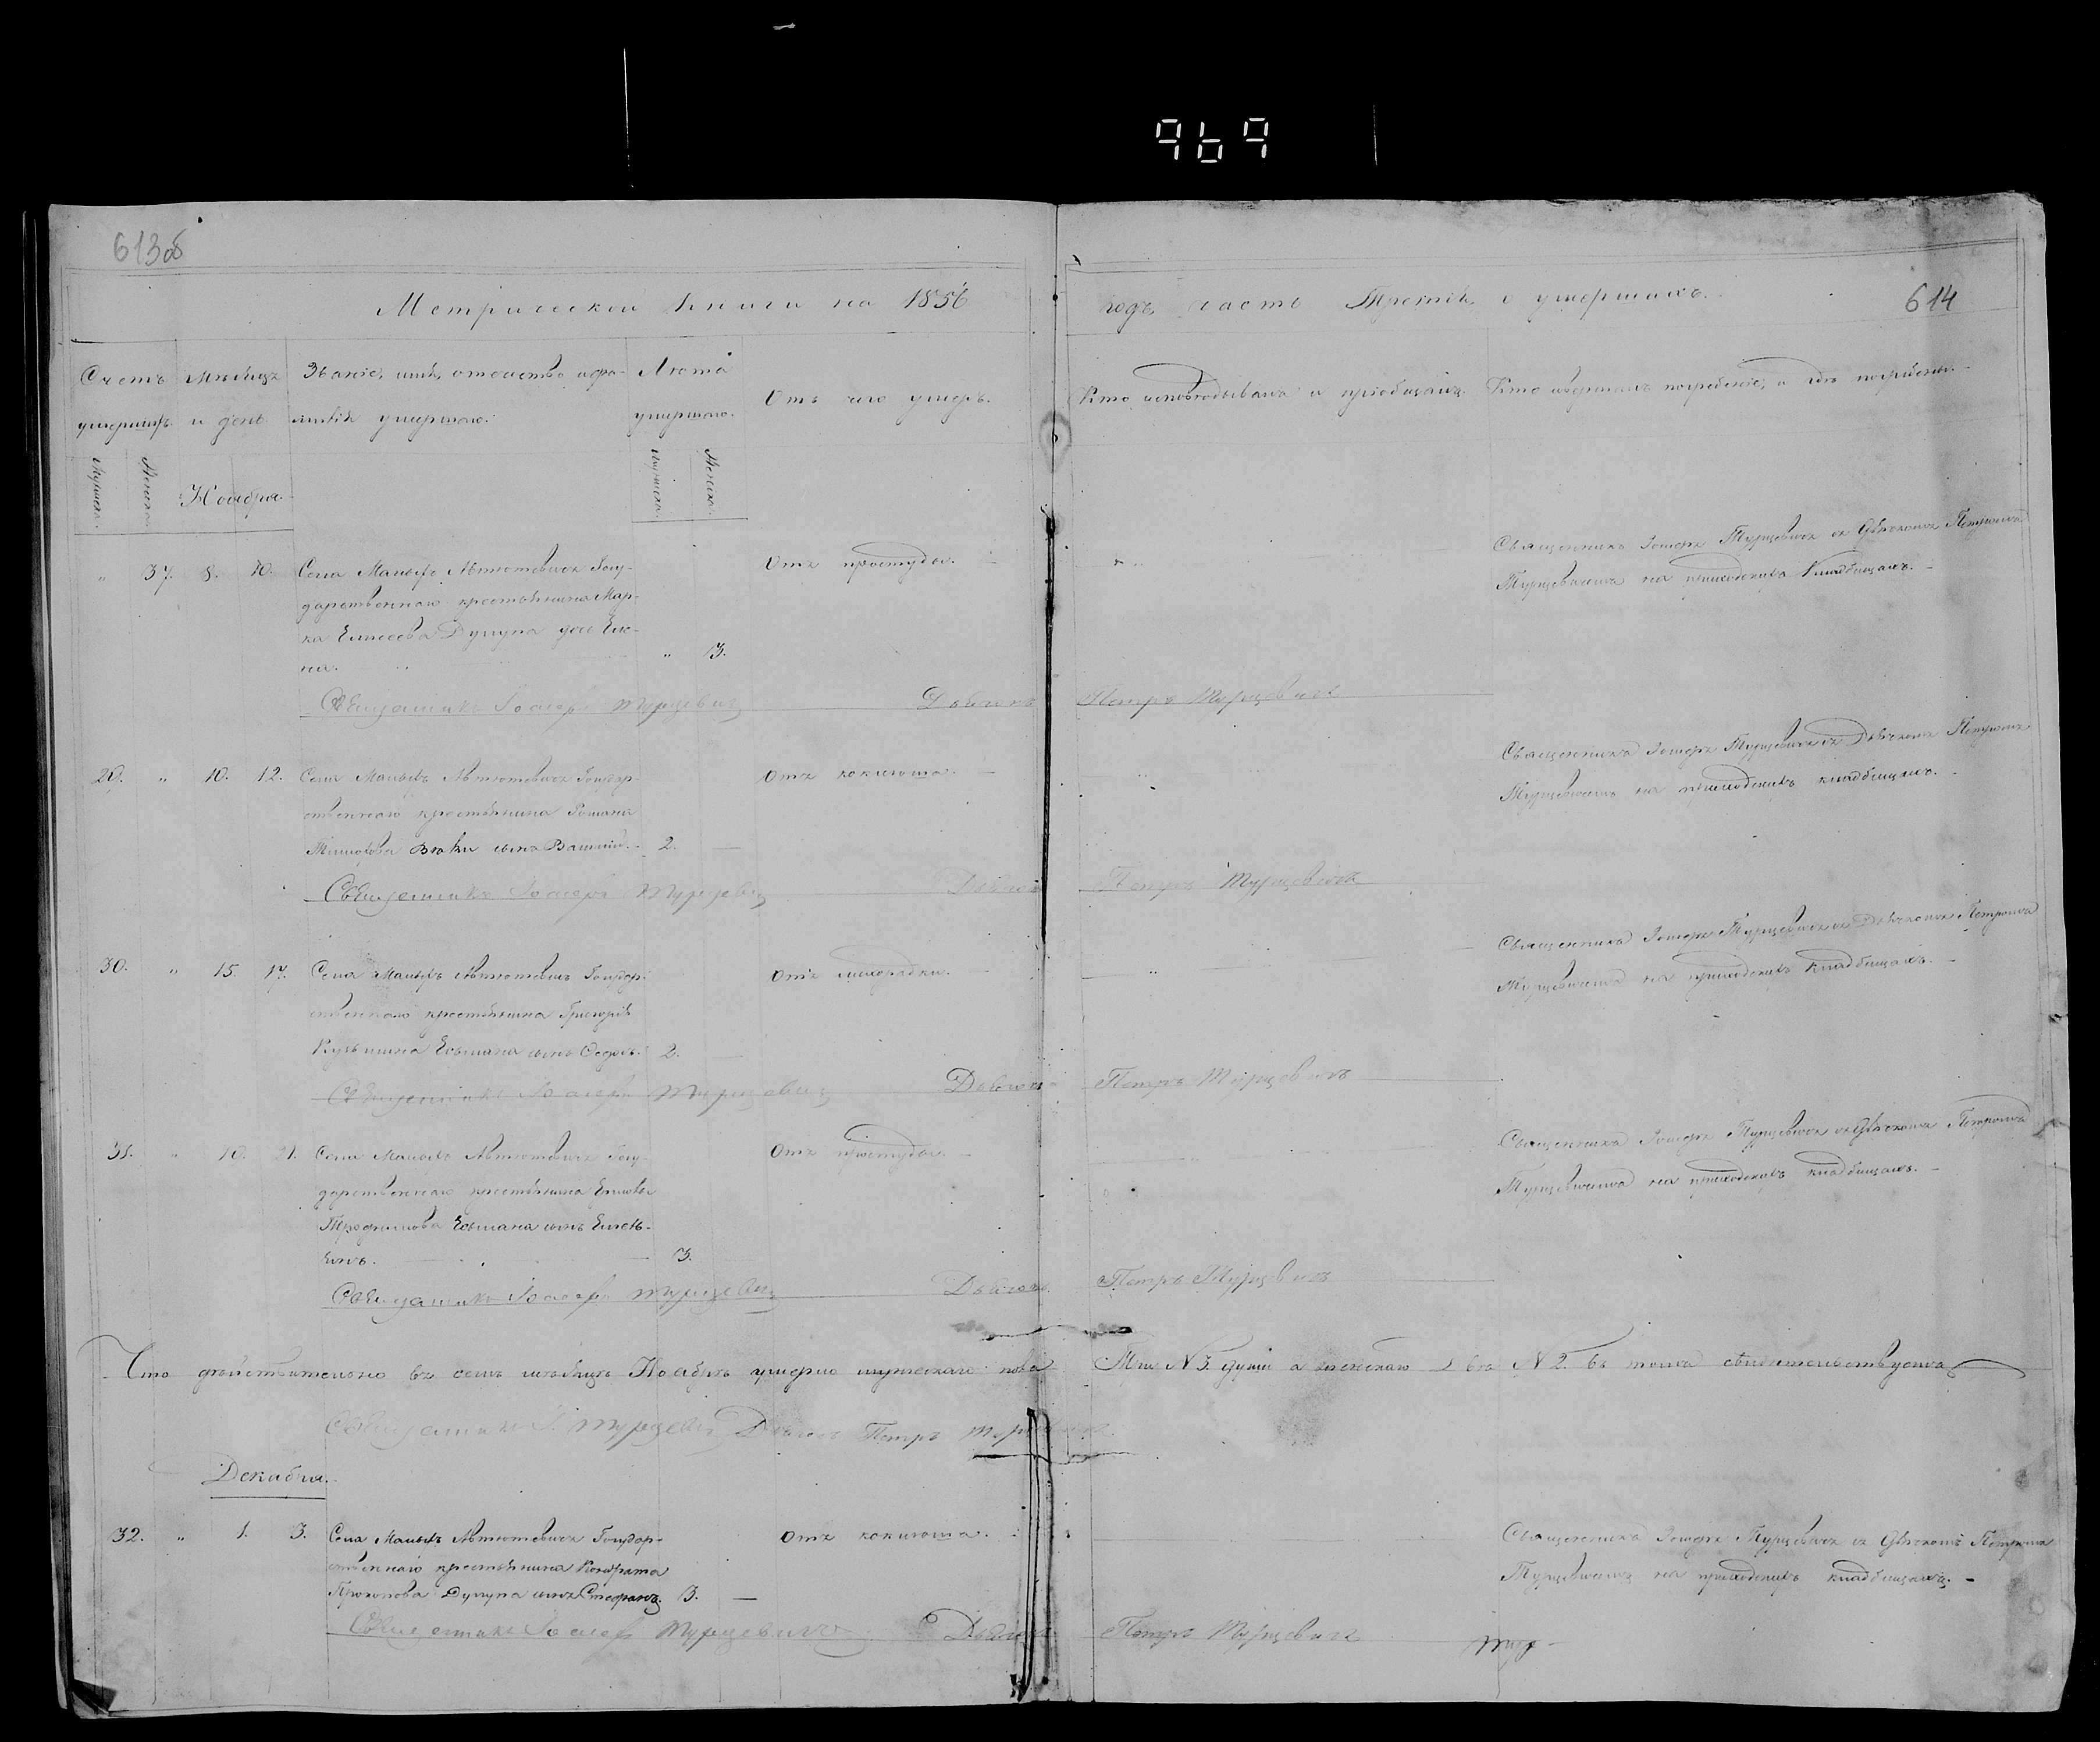 969
613об
614
Метрической книги на 1856
годъ, часть Третія, о умершихъ.
Счетъ
умершихъ.
Мѣсяцъ
и день
Званіе, имя, отчество и фа-
милія умершаго.
Лѣта
умершаго.
Отъ чего умеръ.
Кто исповѣдывалъ и пріобщалъ.
Кто совершалъ погребеніе, и гдѣ погребены.
Мужеска.
Женска.
Ноября.
Мужеска.
Женска.
" 37. 8. 10. Села Малыхъ Автютевичъ Госу-
дарственнаго крестьянина Мар-
ка Елисеева дочь Еле-
на. " 3.
Отъ простуды.
Священникъ Іосифъ Турцевичъ съ дьячкомъ Петромъ
Турцевичемъ на приходскихъ кладбищахъ.
Священникъ Іосифъ Турцевичъ Дьячокъ Петръ Турцевичъ
29. " 10. 12. Села Малыхъ Автютевичъ Государ-
ственнаго крестьянина Романа
сынъ Василій. 2.
Отъ коклюша.
Священникъ Іосифъ Турцевичъ съ Дьячкомъ Петромъ
Турцевичемъ на приходскихъ кладбищахъ.
Священникъ Іосифъ Турцевичъ Дьячокъ Петръ Турцевичъ
30. " 15. 17. Села Малыхъ Автютевичъ Государ-
ственнаго крестьянина Григорія
Кузьмина Есьмана сынъ Ѳедоръ. 2.
Отъ лихорадки.
Священникъ Іосифъ Турцевичъ съ Дьячкомъ Петромъ
Турцевичемъ на приходскихъ кладбищахъ.
Священникъ Іосифъ Турцевичъ Дьячокъ Петръ Турцевичъ
31. " 21. Села Малыхъ Автютевичъ Госу-
дарственнаго крестьянина
Трофимова Есьмана сынъ
3.
Отъ простуды.
Священникъ Іосифъ Турцевичъ съ дьячкомъ Петромъ
Турцевичемъ на приходскихъ кладбищахъ.
Священникъ Іосифъ Турцевичъ Дьячокъ Петръ Турцевичъ
Что дѣйствительно въ семъ мѣсяцѣ Ноябрѣ умерло мужескаго пола №3. души а женскаго №2. въ томъ свидѣтельствуемъ
Священникъ І. Турцевичъ Дьячокъ Петръ Турцевичъ
Декабря.
32. " 1. 3. Села Малыхъ Автютевичъ Государ-
ственнаго крестьянина Кондрата
Прокопова сынъ Стефанъ. 3.
Отъ коклюша.
Священникъ Іосифъ Турцевичъ съ дьячкомъ Петромъ
Турцевичемъ на приходскихъ кладбищахъ.
Священникъ Іосифъ Турцевичъ Дьячокъ Петръ Турцевичъ